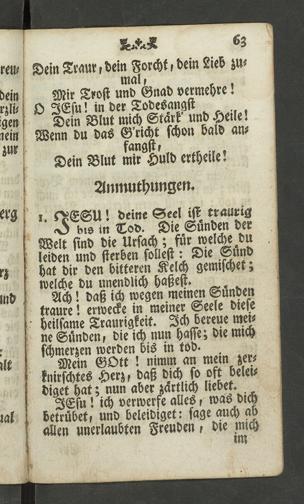 63
Dein Traur, dein Forcht, dein Lieb zu-
mal,
Mir Trost und Gnad vermehre!
O JEsu! in der Todesangst
Dein Blut mich Stärk' und Heile!
Wenn du das G'richt schon bald an-
fangst,
Dein Blut mir Huld ertheile!
Anmuthungen.
1. JESU! deine Seel ist traurig
bis in Tod. Die Sünden der
Welt sind die Ursach; für welche du
leiden und sterben sollest: Die Sünd
hat dir den bitteren Kelch gemischet;
welche du unendlich haßest.
Ach! daß ich wegen meinen Sünden
traure! erwecke in meiner Seele diese
heilsame Traurigkeit. Ich bereue mei-
ne Sünden, die ich nun hasse; die mich
schmerzen werden bis in tod.
Mein GOtt! nimm an mein zer-
knirschtes Herz, daß dich so oft belei-
diget hat; nun aber zärtlich liebet.
JEsu! ich verwerfe alles, was dich
betrübt, und beleidiget: sage auch ab
allen unerlaubten Freuden, die mich
im
reu-
dein
igen
nein
zur
erg
rz
und
alt
ual